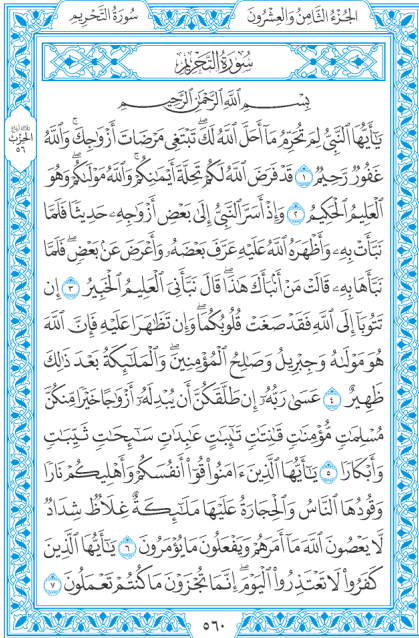 سُورَةُ التَّحْرِيمِ
الجُزْءُ الثَّامِنُ وَالعِشْرُونَ
سُورَةُ التَّحْرِيمِ
بِسْمِ ٱللَّهِ ٱلرَّحْمَٰنِ ٱلرَّحِيمِ
يَٰٓأَيُّهَا ٱلنَّبِىُّ لِمَ تُحَرِّمُ مَآ أَحَلَّ ٱللَّهُ لَكَ ۖ تَبْتَغِى مَرْضَاتَ أَزْوَٰجِكَ ۚ وَٱللَّهُ
غَفُورٌ رَّحِيمٌ ١ قَدْ فَرَضَ ٱللَّهُ لَكُمْ تَحِلَّةَ أَيْمَٰنِكُمْ ۚ وَٱللَّهُ مَوْلَىٰكُمْ ۖ وَهُوَ
ٱلْعَلِيمُ ٱلْحَكِيمُ ٢ وَإِذْ أَسَرَّ ٱلنَّبِىُّ إِلَىٰ بَعْضِ أَزْوَٰجِهِۦ حَدِيثًا فَلَمَّا
نَبَّأَتْ بِهِۦ وَأَظْهَرَهُ ٱللَّهُ عَلَيْهِ عَرَّفَ بَعْضَهُۥ وَأَعْرَضَ عَنۢ بَعْضٍ ۖ فَلَمَّا
نَبَّأَهَا بِهِۦ قَالَتْ مَنْ أَنۢبَأَكَ هَٰذَا ۖ قَالَ نَبَّأَنِىَ ٱلْعَلِيمُ ٱلْخَبِيرُ ٣ إِن
تَتُوبَآ إِلَى ٱللَّهِ فَقَدْ صَغَتْ قُلُوبُكُمَا ۖ وَإِن تَظَٰهَرَا عَلَيْهِ فَإِنَّ ٱللَّهَ
هُوَ مَوْلَىٰهُ وَجِبْرِيلُ وَصَٰلِحُ ٱلْمُؤْمِنِينَ ۖ وَٱلْمَلَٰٓئِكَةُ بَعْدَ ذَٰلِكَ
ظَهِيرٌ ٤ عَسَىٰ رَبُّهُۥٓ إِن طَلَّقَكُنَّ أَن يُبْدِلَهُۥٓ أَزْوَٰجًا خَيْرًا مِّنكُنَّ
مُسْلِمَٰتٍ مُّؤْمِنَٰتٍ قَٰنِتَٰتٍ تَٰٓئِبَٰتٍ عَٰبِدَٰتٍ سَٰٓئِحَٰتٍ ثَيِّبَٰتٍ
وَأَبْكَارًا ٥ يَٰٓأَيُّهَا ٱلَّذِينَ ءَامَنُوا۟ قُوٓا۟ أَنفُسَكُمْ وَأَهْلِيكُمْ نَارًا
وَقُودُهَا ٱلنَّاسُ وَٱلْحِجَارَةُ عَلَيْهَا مَلَٰٓئِكَةٌ غِلَاظٌ شِدَادٌ
لَّا يَعْصُونَ ٱللَّهَ مَآ أَمَرَهُمْ وَيَفْعَلُونَ مَا يُؤْمَرُونَ ٦ يَٰٓأَيُّهَا ٱلَّذِينَ
كَفَرُوا۟ لَا تَعْتَذِرُوا۟ ٱلْيَوْمَ ۖ إِنَّمَا تُجْزَوْنَ مَا كُنتُمْ تَعْمَلُونَ ٧
٥٦٠